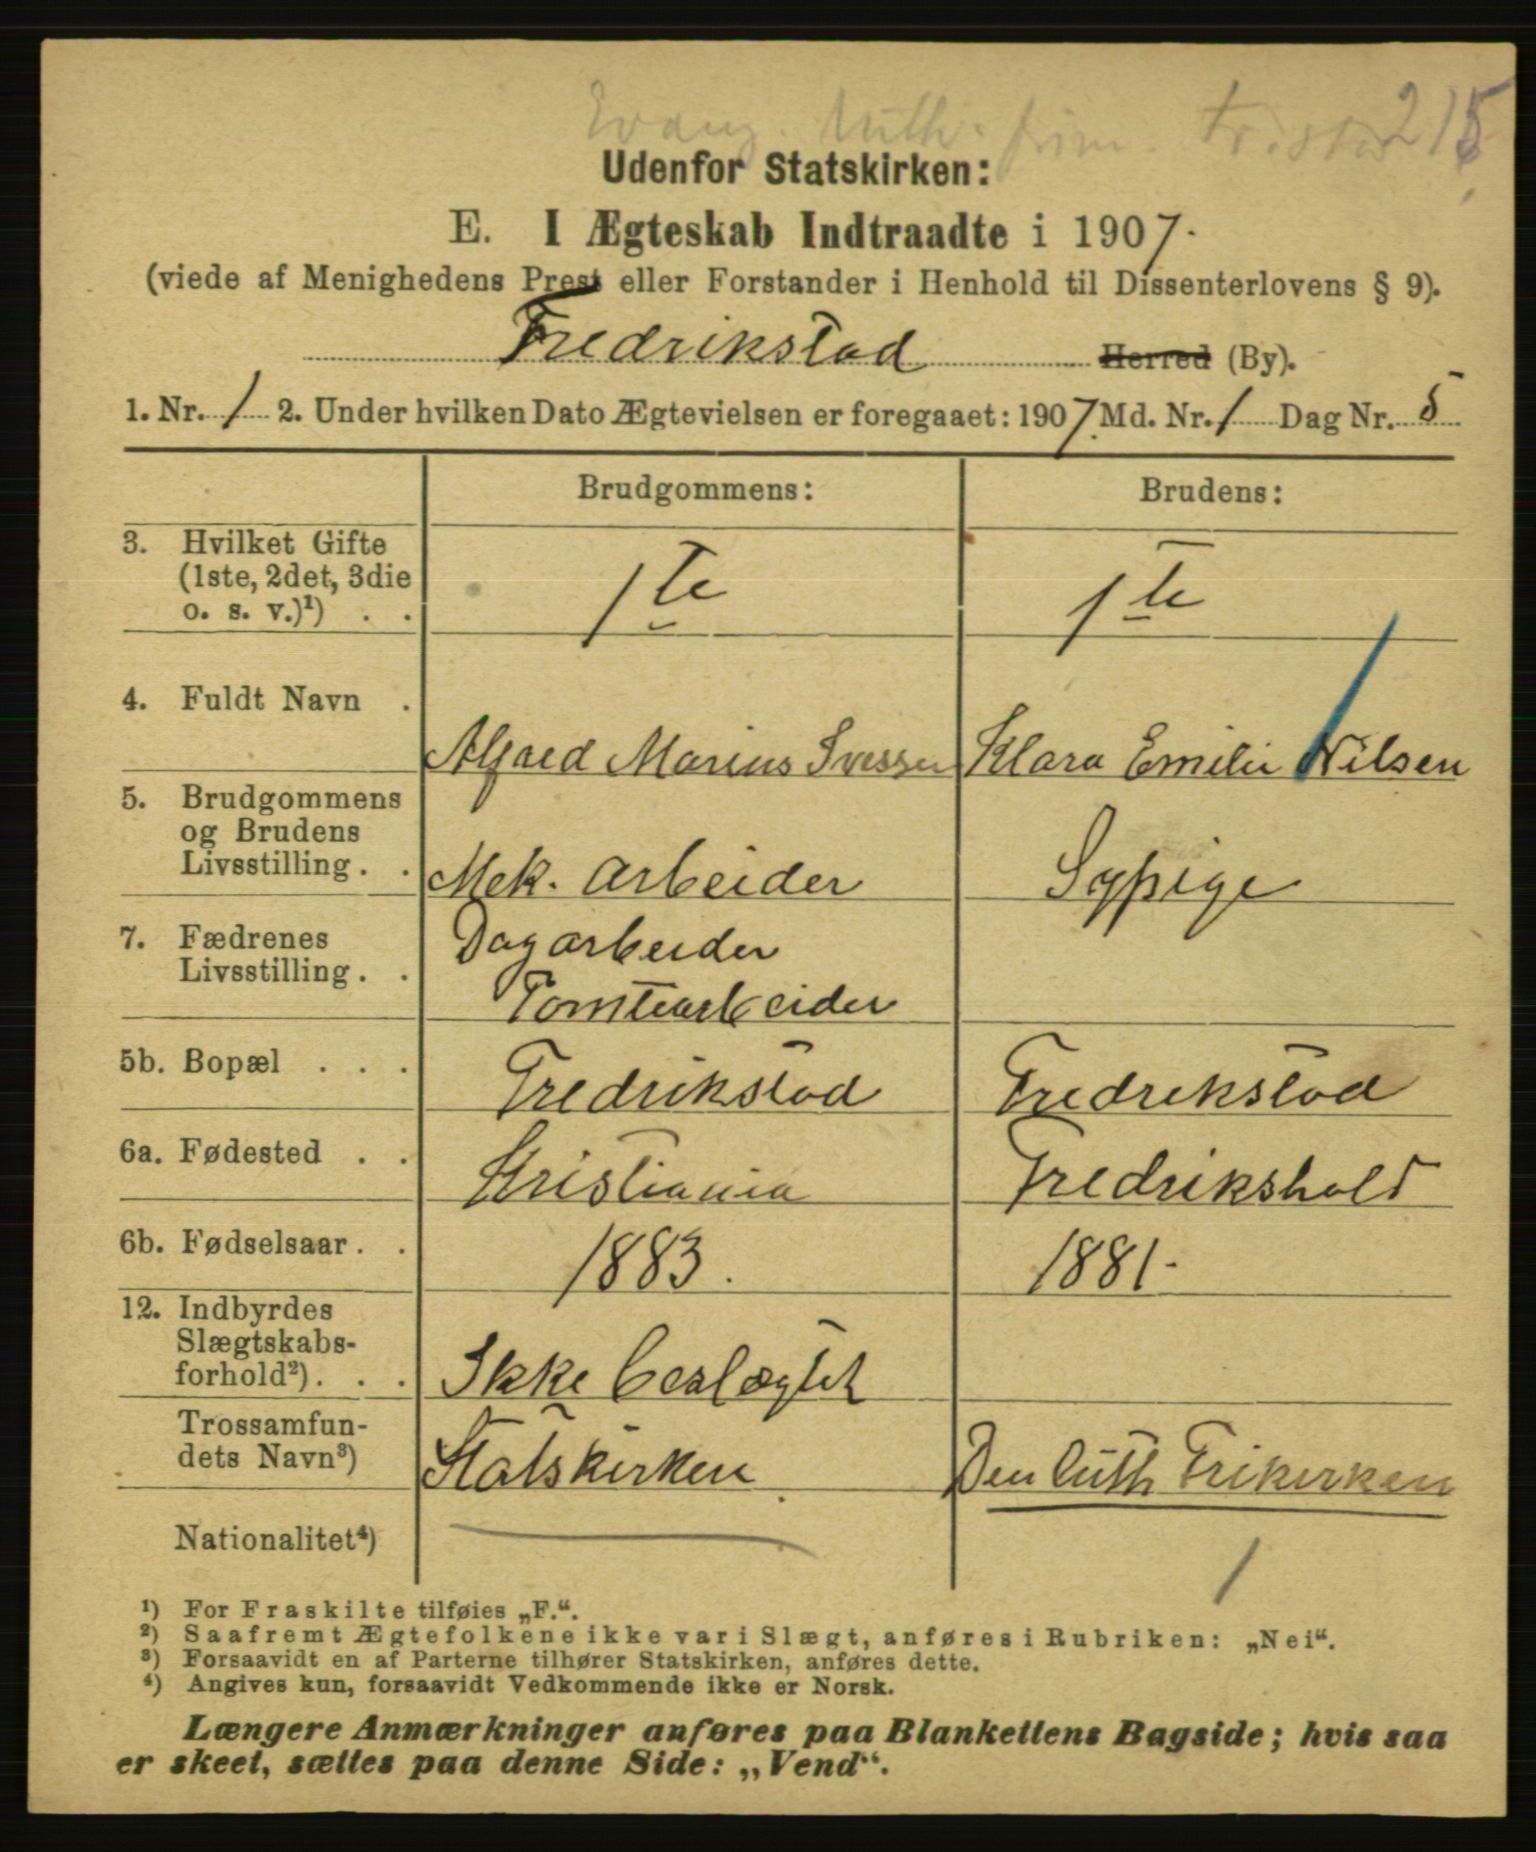 Evang. luth. frim. Fr.stad 215
Udenfor Statskirken:
E. I Ægteskab Indtraadte i 1907.
(viede af Menighedens Prest eller Forstander i Henhold til Dissenterlovens § 9).
Fredrikstad Herred (By).
1. Nr. 1 2. Under hvilken Dato Ægtevielsen er foregaaet: 1907 Md. Nr. 1 Dag Nr. 5
Brudgommens: Brudens:
3. Hvilket Gifte
(1ste, 2det, 3die
o. s. v.)¹) . . 1te 1te
4. Fuldt Navn . Alfred Marius Ivessen Klara Emilie Nilsen
5. Brudgommens
og Brudens
Livsstilling . . Mek. arbeider Sypige
7. Fædrenes Dagarbeider
Livsstilling . . Tomtearbeider
5b. Bopæl . . . Fredrikstad Fredrikstad
6a. Fødested . . Kristiania Fredrikshald
6b. Fødselsaar . . 1883. 1881.
12. Indbyrdes
Slægtskabs-
forhold²) . . . Ikke beslægtet
Trossamfun-
dets Navn³) Statskirken Den luth Frikirken
Nationalitet⁴)
¹) For Fraskilte tilføies „F.“.
²) Saafremt Ægtefolkene ikke var i Slægt, anføres i Rubriken: „Nei“.
³) Forsaavidt en af Parterne tilhører Statskirken, anføres dette.
⁴) Angives kun, forsaavidt Vedkommende ikke er Norsk.
Længere Anmærkninger anføres paa Blankettens Bagside; hvis saa
er skeet, sættes paa denne Side: „Vend“.